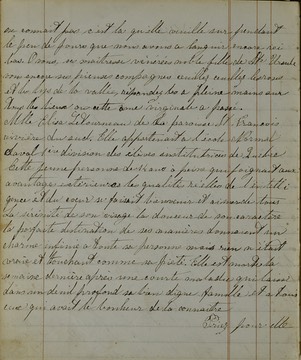 ne connait pas c'est là qu'elle veille sur pendant
le peu de jours que nous avons à languir encore ici
bas. Dames, sa maîtresse vénérée
vous ses pieuses compagnes cueillez cueillez les roses
et les lys de la vallée, répandez les à pleines mains sur
les lieux où cette âme virginale a passé.
Melle. de la paroisse St. François
rivière du sud. Elle appartenait à l'école Normale
Laval 1ère division des élèves institutrices de Québec
Cette jeune personne de
avantages extérieurs les qualités réelles de l'intelli
gence et du cœur se faisait honneur et aimer de tous
La sérénité de son visage la douceur de son caractère
la parfaite distinction de ses manières donnaient un
charme infini à toute sa personne mais rien n'était
vrai et touchant comme sa piété. Elle est morte la
semaine dernière après une courte maladie qui laisse
dans un deuil profond sa bien digne famille et tous
ceux qui avait le bonheur de la connaître
Priez pour elle